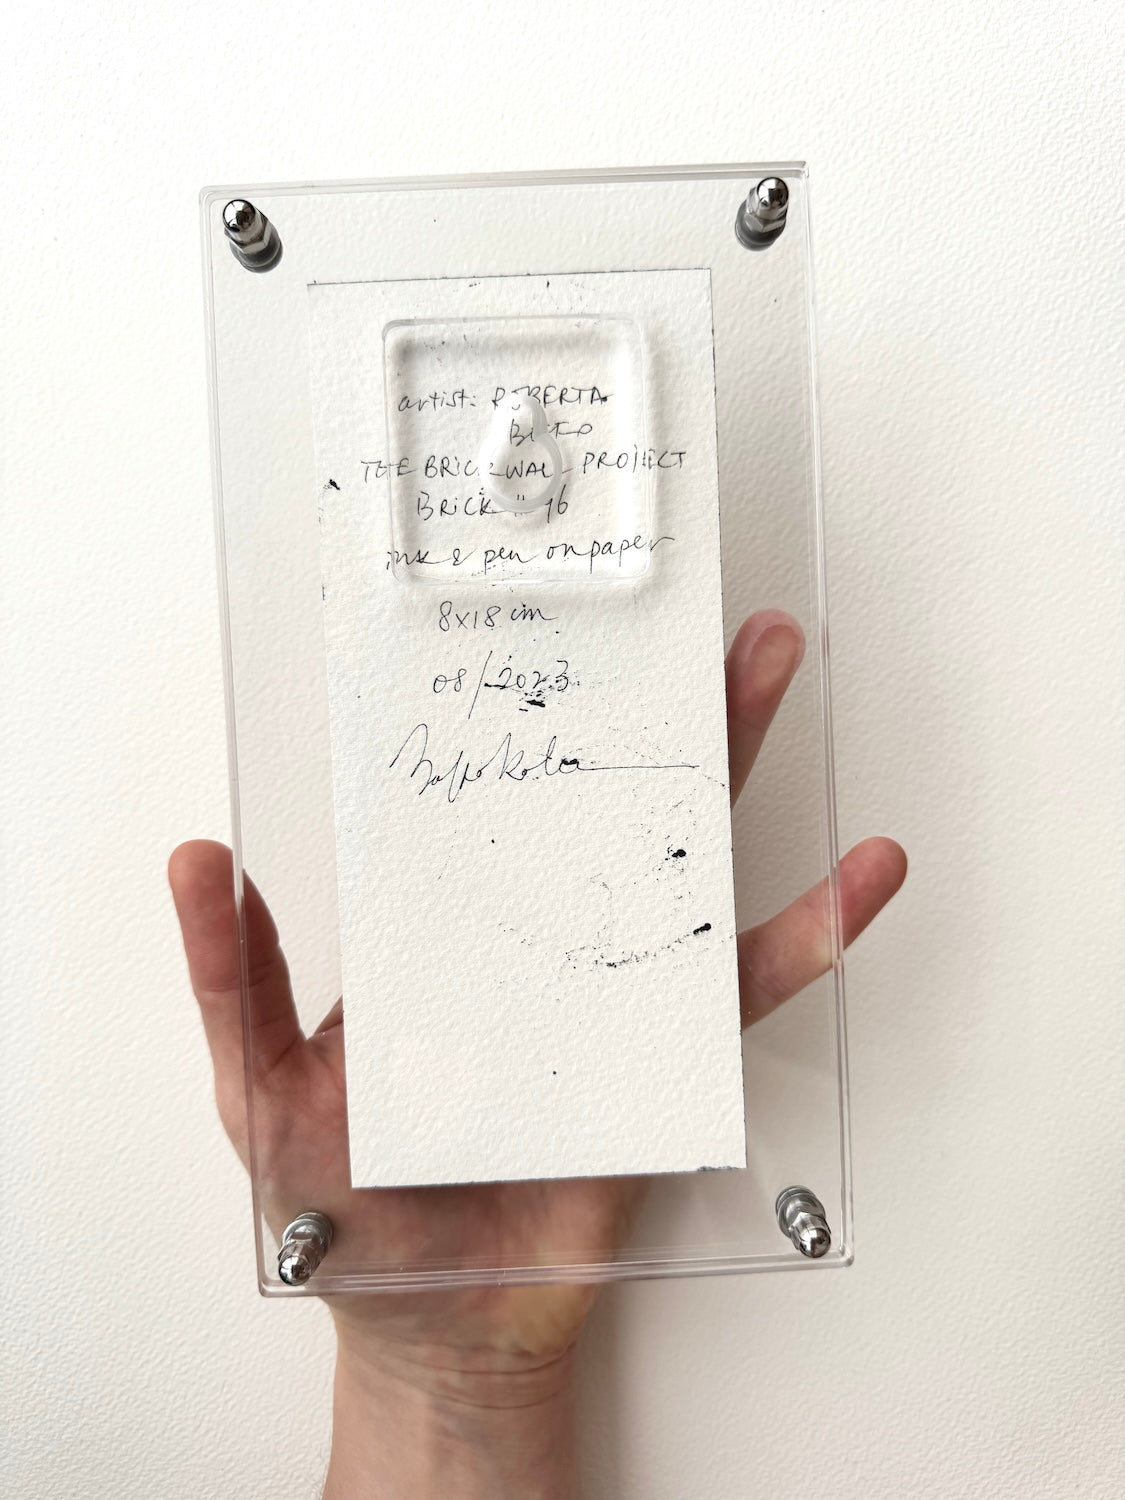 artist: ROBERTA
THE BRICK WALL PROJECT
BRICK # 16
ink & pen on paper
8x18 cm
08/2023